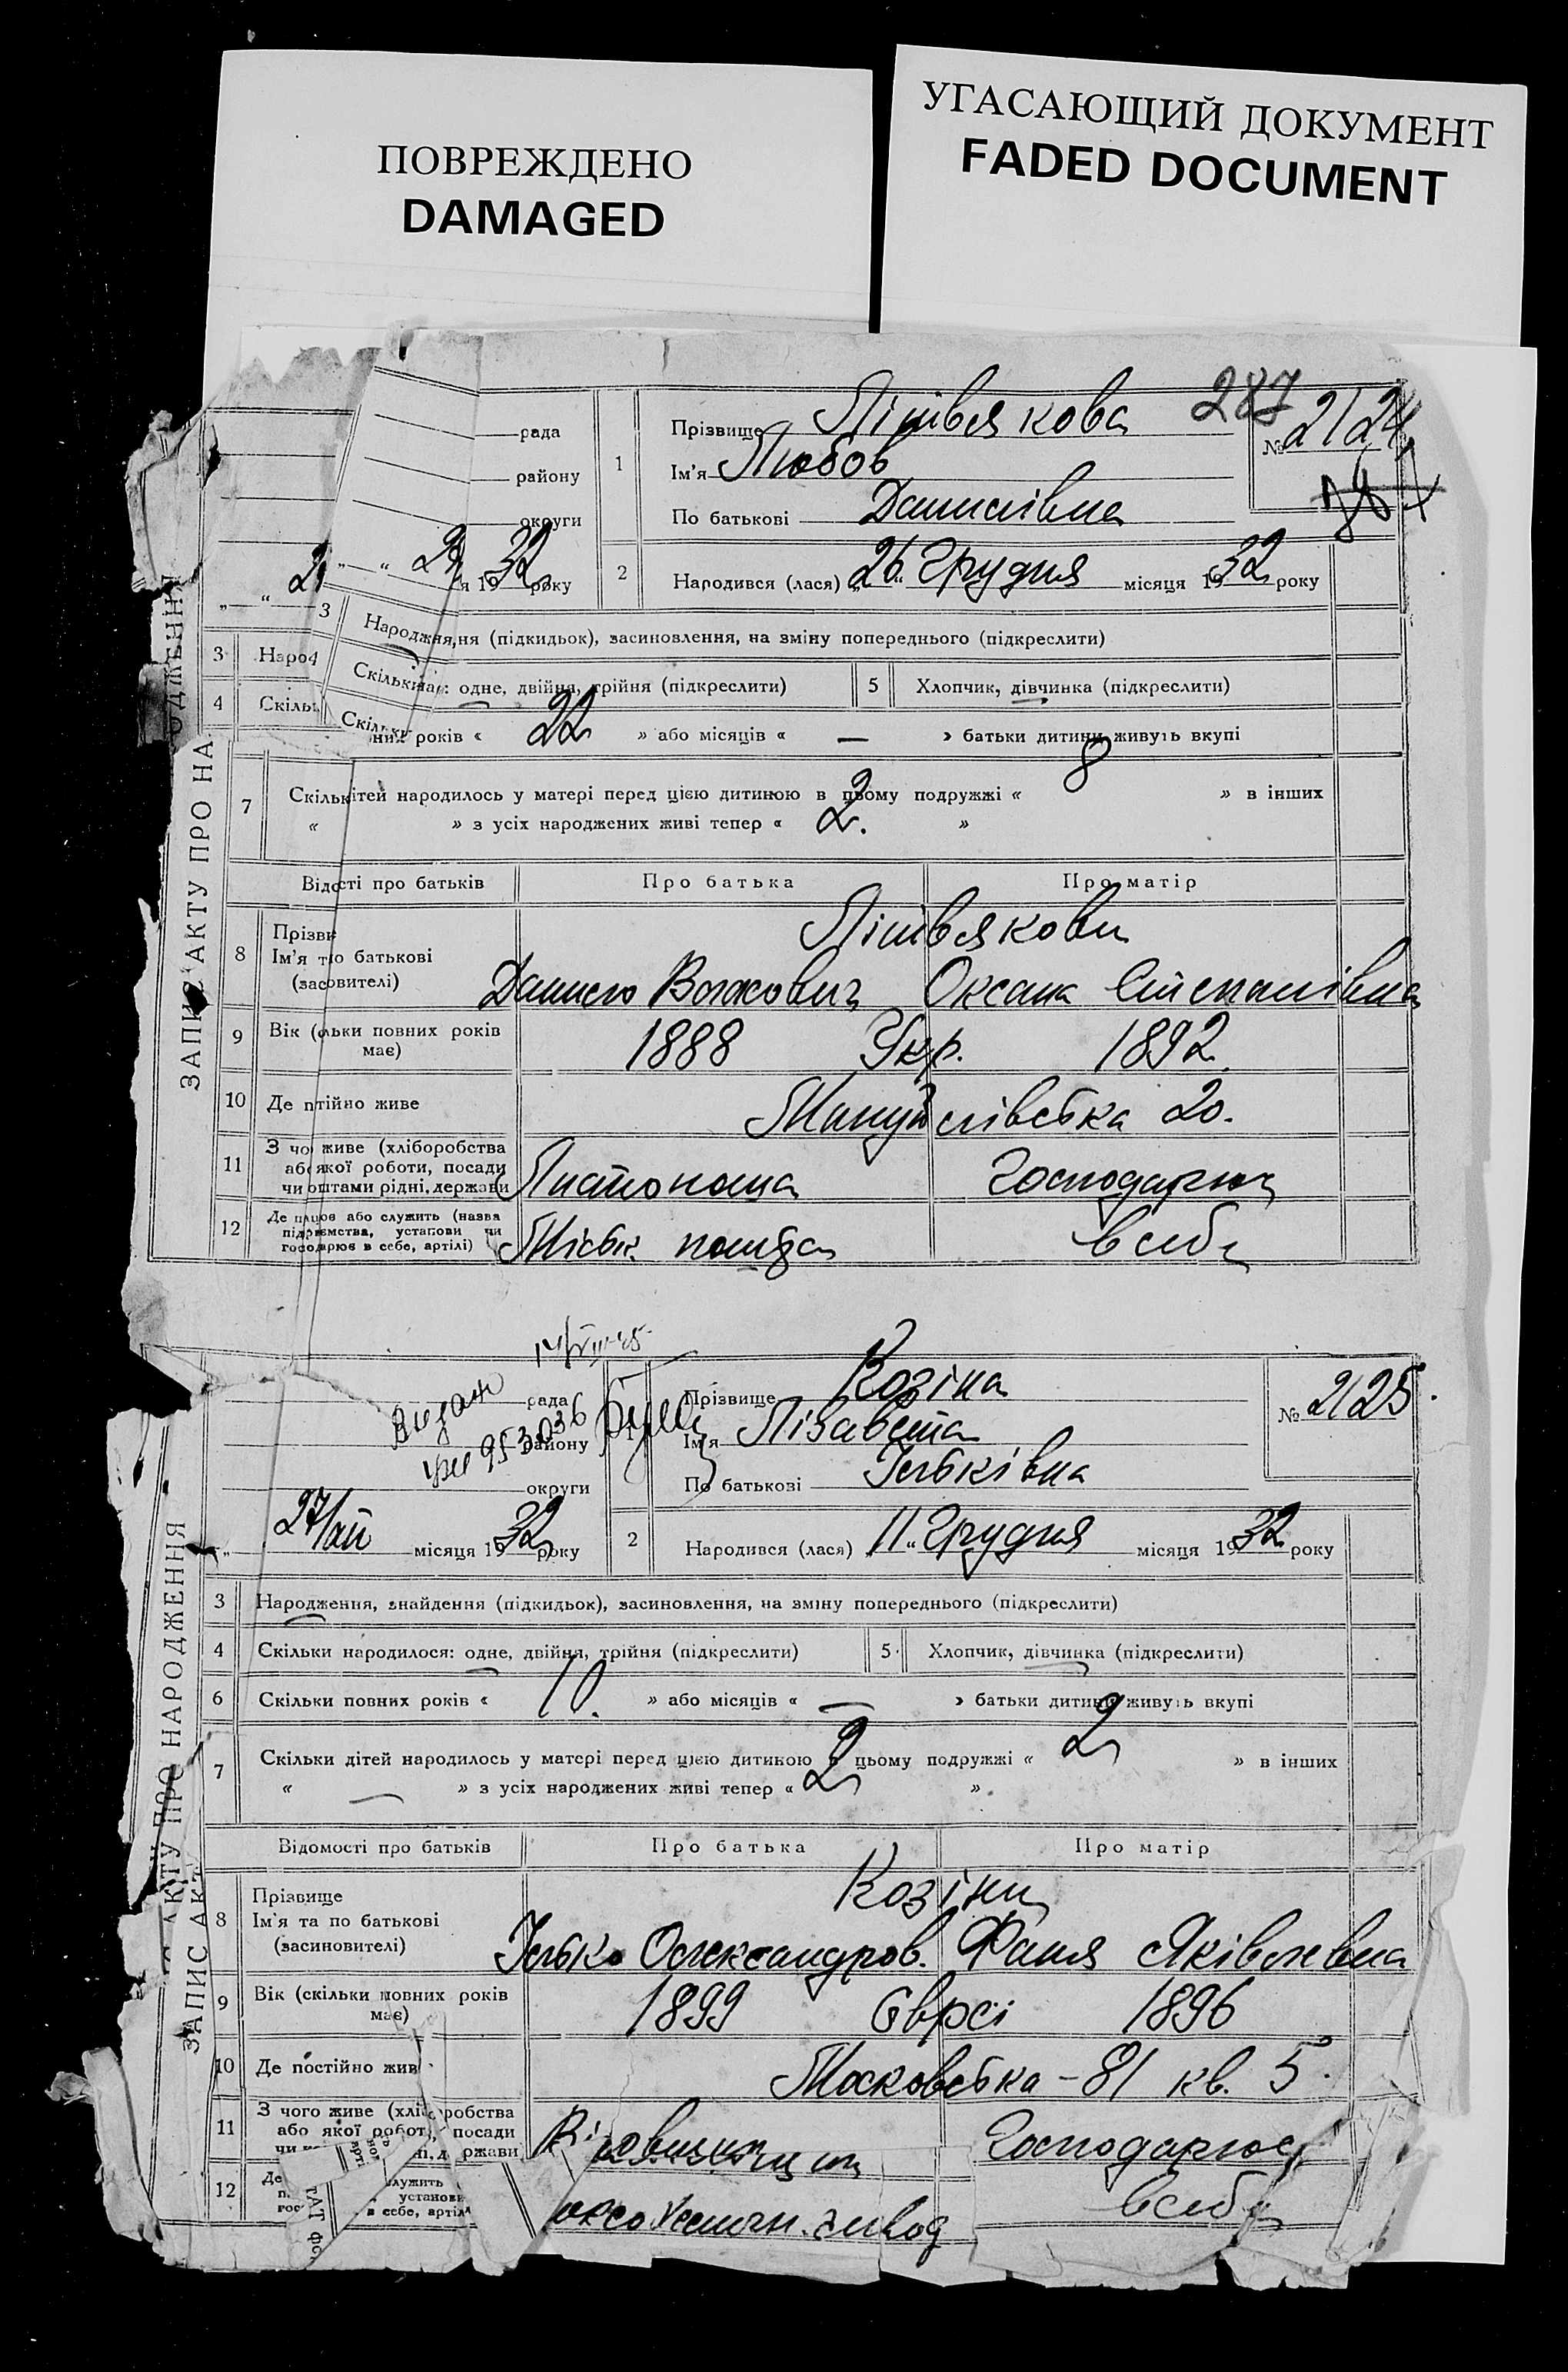 ПОВРЕЖДЕНО
DAMAGED
УГАСАЮЩИЙ ДОКУМЕНТ
FADED DOCUMENT
287
рада
району
округи
29 я 1932 року
1
Прізвище
Ім'я Любов
По батькові Данилівна
№ 2124
2
Народився (лася) „26" Грудня місяця 1932 року
3 Народження (підкидьок), засиновлення, на зміну попереднього (підкреслити)
4 Скільки : одне, двійня, трійня (підкреслити)
5 Хлопчик, дівчинка (підкреслити)
них років « 22 » або місяців « — » батьки дитини живуть вкупі
7 Скільк ітей народилось у матері перед цією дитиною в цьому подружжі « 8 » в інших
« » з усіх народжених живі тепер « 2. »
ЗАПИС АКТУ ПРО НА
Від сті про батьків
Про батька
Про матір
8
Прізви
Ім'я т о батькові
(зас овителі)
Данило
Оксана Степанівна
9 Вік ( льки повних років має)
1888 Укр. 1892.
10 Де п тійно живе
Мануйлівська 20.
11 З чо живе (хліборобства
аб якої роботи, посади
чи оштами рідні, держави
Листоноша
Господарює
12 Де п цює або служить (назва
підп ємства, установи чи
госп дарює в себе, артілі)
Міськ. пошта
в себе
Видан
рада
району
округи
27/ХІІ місяця 1932 року
1
Прізвище Козіна
Ім'я Лізавета
По батькові Ільківна
№ 2125
2
Народився (лася) „11" Грудня місяця 1932 року
ЗАПИС АКТУ ПРО НАРОДЖЕННЯ
3 Народження, знайдення (підкидьок), засиновлення, на зміну попереднього (підкреслити)
4 Скільки народилося: одне, двійня, трійня (підкреслити)
5 Хлопчик, дівчинка (підкреслити)
6 Скільки повних років « 10. » або місяців « — » батьки дитини живуть вкупі
7 Скільки дітей народилось у матері перед цією дитиною в цьому подружжі « 2 » в інших
« — » з усіх народжених живі тепер « 2 »
Відомості про батьків
Про батька
Про матір
8
Прізвище
Ім'я та по батькові
(засиновителі)
Козіни
Ілько Олександров. Фаня Яківлевна
9 Вік (скільки повних років має)
1899 Євреї 1896
10 Де постійно жив
Московська – 81 кв. 5
11 З чого живе (хліборобства
або якої роботи, посади
ржави
Господарює
12 Де
служить
установи
в себе, артіл
завод
в себе